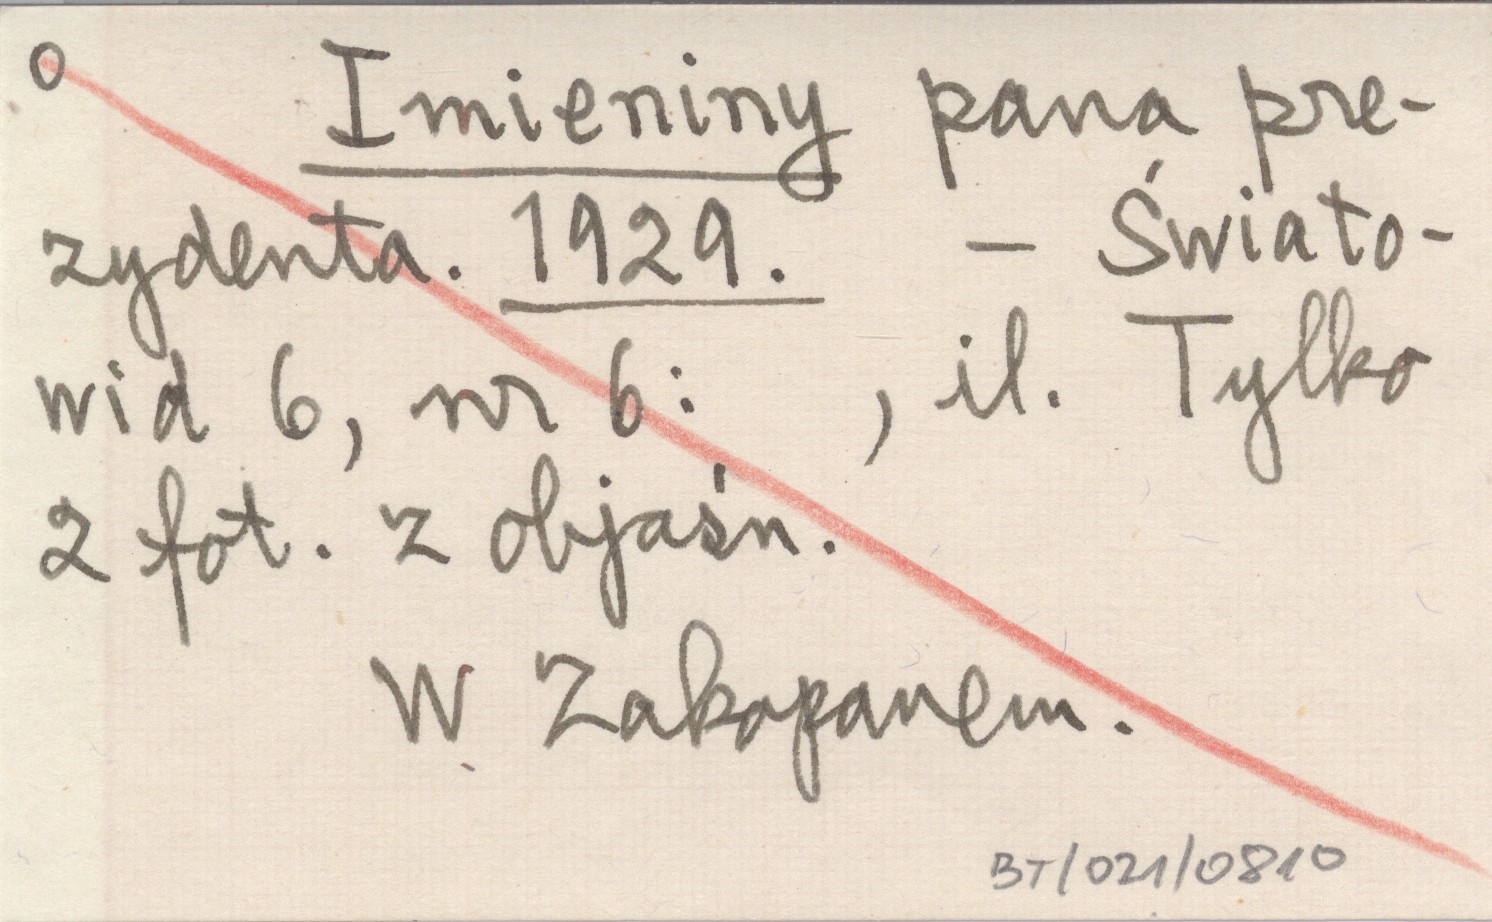 o Imieniny pana pre-
zydenta. 1929. – Świato-
wid 6, nr 6: , il. Tylko
2 fot. z objaśn.
W Zakopanem.
BT/021/0810